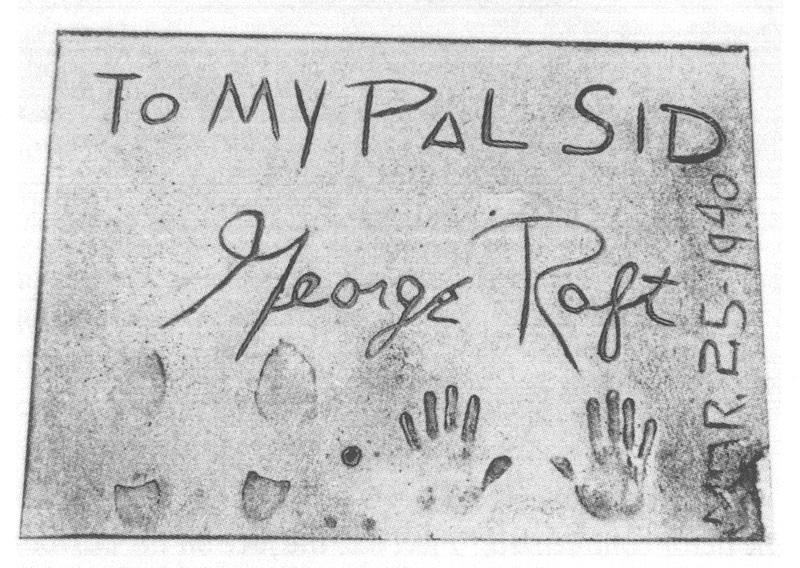 TO MY PAL SID
George Raft
MAR. 25-1940